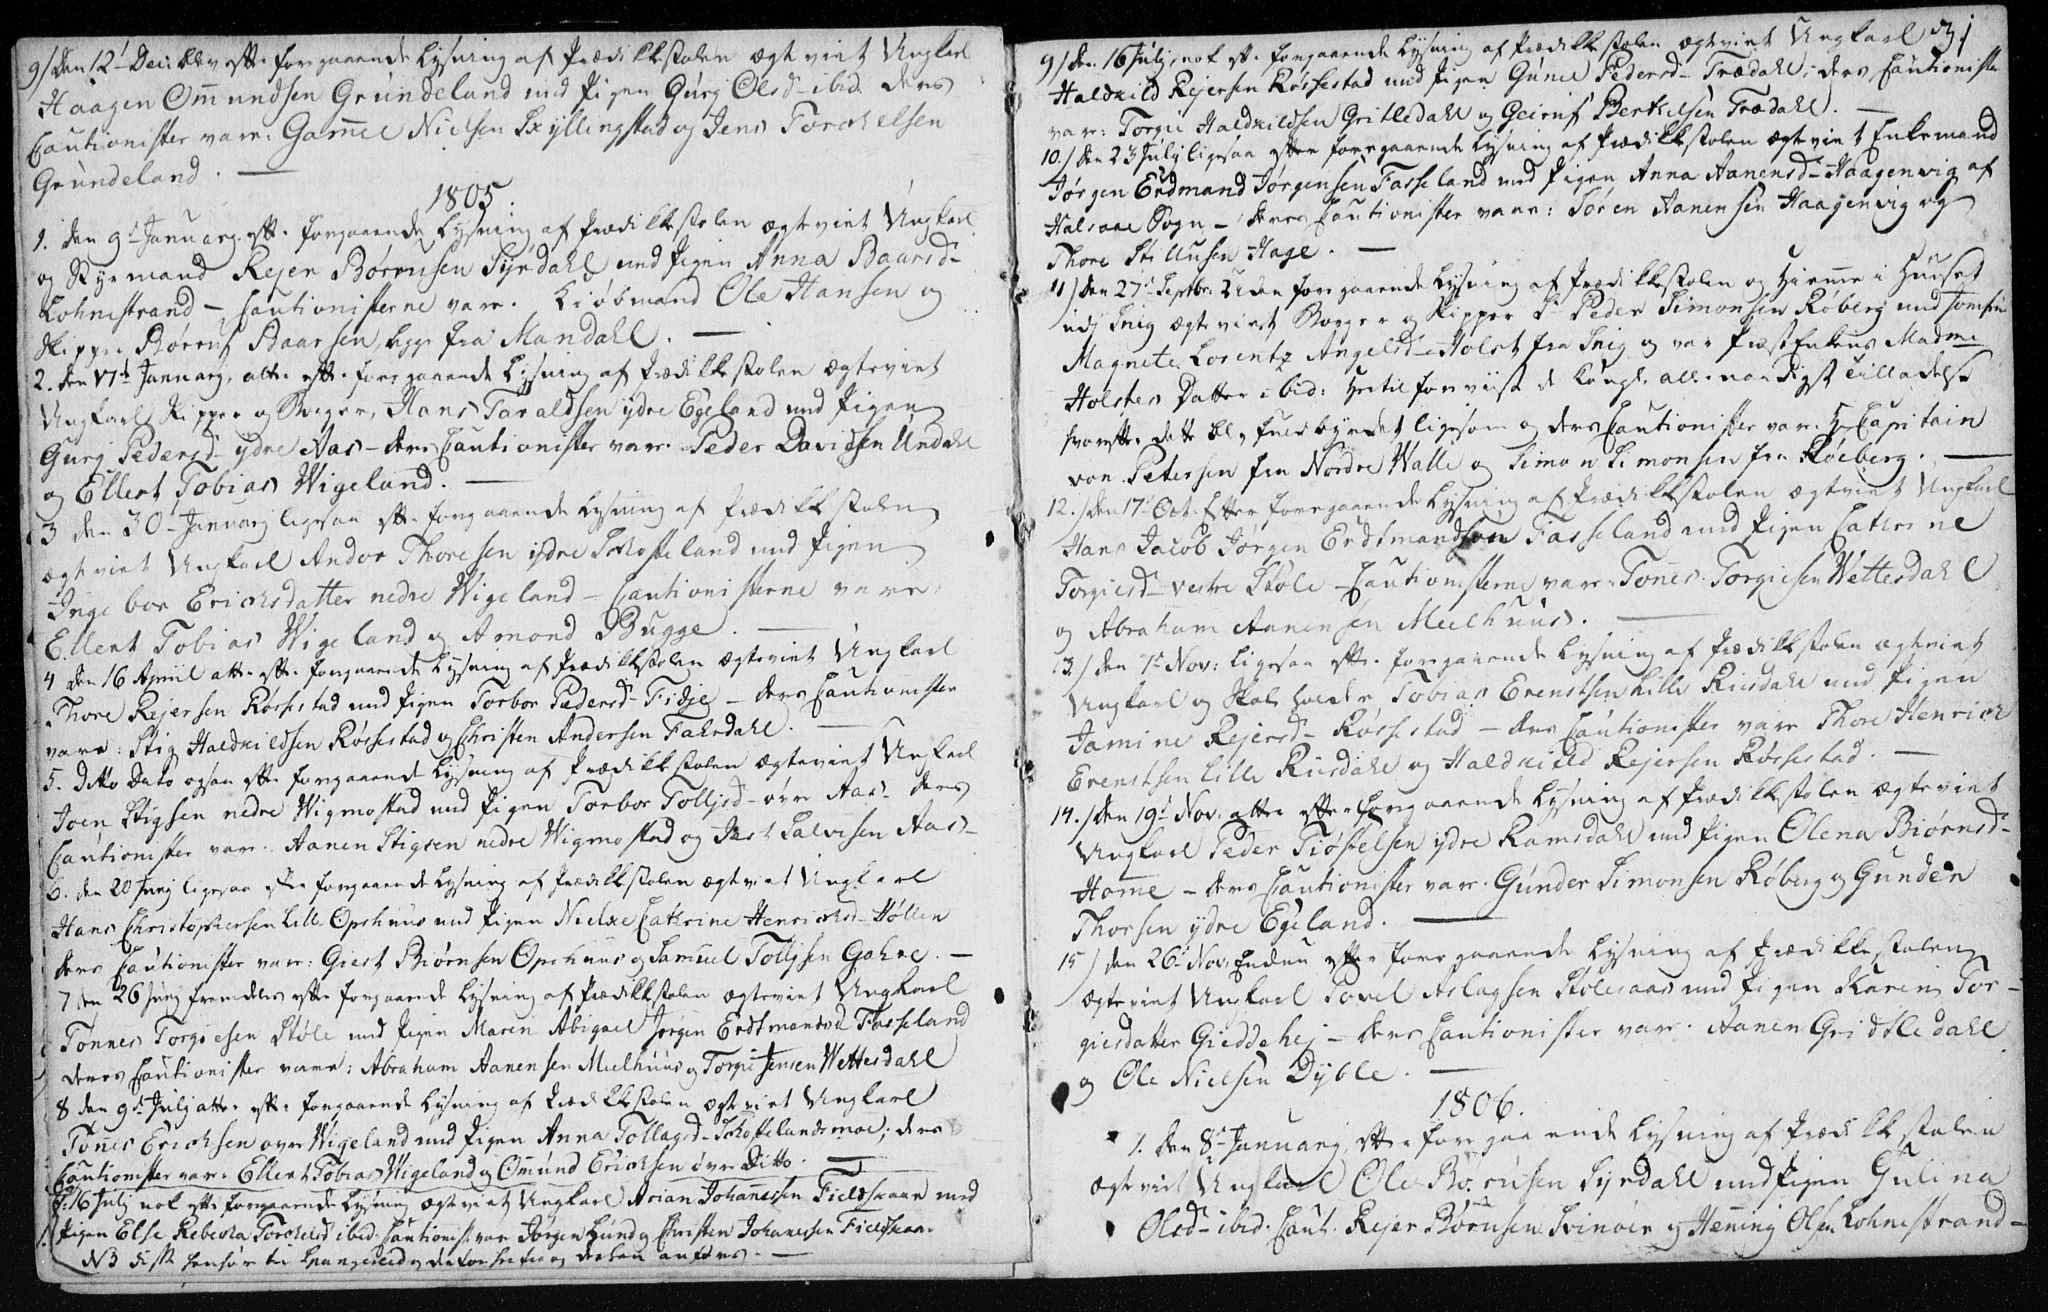 9/ den 12t Dec: blev efter foregaaende Lysning af Prædikkestolen ægteviet Ungkarl
Haagen Omundsen Grundeland med Pigen Gurg Olsd- ibid. deres
Cautionister vare: Gamel Nielsen Skyllingstad og Jens Torckelsen
Grundeland. —
1805.
1. den 9d January. efter foregaaende Lysning af Prædikkestolen ægteviet Ungkarl
og Styrmand Rejer Børrusen Syrdahl med Pigen Anna Baarsd-
Lohnestrand – Cautionisterne vare. Kiøbmand Ole Hansen og
Skipper Børruf Baarsen begge fra Mandahl. —
2. den 17d January, atter efter foregaaende Lysning af Prædikkestolen ægteviet
Ungkarl Skipper og Borger, Hans Taraldsen ydre Egeland med Pigen
Gurg Pedersd- ydre Aas – deres Cautionister var. Peder Davidsen Undahl
og Ellert Tobias Wigeland. —
3 den 30- January ligesaa efter foregaaende Lysning af Prædikkestolen
ægteviet Ungkarl Andor Thoresen ydre Skofteland med Pigen
Ingebor Ericksdatter nedre Wigeland – Cautionisterne vare
Ellert Tobias Wigeland og Amond Bugge. —
4 den 16 April atter efter foregaaende Lysning af Prædikkestolen ægteviet Ungkarl
Thore Rejersen Røssestad med Pigen Torbor Pedersd- Fidje – deres Cautionister
vare: Stig Haldkildsen Røssestad og Christen Andersen Fahrdahl. —
5. Ditto Dato ogsaa efter foregaaende Lysning af Prædikkestolen ægteviet Ungkarl
Joen Stigsen nedre Wigmostad med Pigen Torbor Tolljsd- øvre Aas- deres
Cautionister var. Aanen Stigsen nedre Wigmostad og Just Salvesen Aas-
6. den 20 Juny ligesaa efter foregaaende Lysning af Prædikkestolen ægteviet Ungkarl
Hans Christophersen Lille Opshuus med Pigen Nielke Cathrine Henricksd- Høllen
deres Cautionister var: Giert Biørnsen Opshuus og Samuel Tolljsen Gahre. —
7 den 26 Juny fremdeles efter foregaaende Lysning af Prædikkestolen ægteviet Ungkarl
Tønnes Torgiesen Støle med Pigen Maren Abigael Jørgen Erdtmandsd Fasseland
deres Cautionister vare: Abraham Aanensen Meelhuus og Torgie Jensen Wettesdahl
8 den 9d July atter efter foregaaende Lysning af Prædikkestolen ægteviet Ungkarl
Tønes Ericksen øvre Wigeland med Pigen Anna Tollagsd- Skoftelandsmoe; deres
Cautionister var. Ellert Tobias Wigeland og Omund Ericksen øvre Ditto. —
d: 16 July nok efter foregaaende Lysning ægteviet Ungkarl Arian Johannesen Fieldskaar med
Pigen Else Rebecka Torckelsd ibid. Cautionist. var Jørgen Lund og Christen Johannesen Fieldskaar.
NB disse henhør til Spangereid og derfor her og dersteden anføres. —
31
9/ den 16 July, nok efter foregaaende Lysning af Prædikkestolen ægteviet Ungkarl
Haldkild Rejersen Røssestad med Pigen Gunel Pedersd- Trædahl; deres Cautionister
var: Torgie Haldkildsen Gritledahl og Geiruf Berthelsen Trædahl. —
10./ den 23 July ligesaa efter foregaaende Lysning af Prædikkestolen ægteviet Enkemand
Jørgen Erdmand Jørgensen Fasseland med Pigen Anna Aanensd- Haagenvig af
Halsaae Sogn – deres Cautionister vare: Søren Aanensen Haagenvig og
Thore Stillufsen Hage. —
11/ den 27d Septbr: uden foregaaende Lysning af Prædikkestolen og hiemme i Huuset
udj Snig ægteviet Borger og Skipper Sr Peder Simonsen Røberg med Jomfrue
Magnete Lorentz Angelsd- Holst fra Snig og var Præst Enkens Madme
Holstes Datter ibid: hertil forviist de Kongl. allernaadigst tilladelse
hvorefter dette blev fuldbyrdet ligesom og deres Cautionister var. Hr Capitain
von Petersen fra Nordre Walle og Simon Simonsen fra Røeberg. —
12./ den 17d Oct. Efter foregaaende Lysning af Prædikkestolen ægteviet Ungkarl
Hans Jacob Jørgen Erdtmandsen Fasseland med Pigen Cathrine
Torgiesd- vestre Støle – Cautionisterne var: Tønes Torgiesen Wettesdahl
og Abraham Aanensen Meelhuus. —
13./ den 7d Nov: ligesaa efter foregaaende Lysning af Prædikkestolen ægteviet
Ungkarl og Skoleholder Tobias Erenstsen Lille Riisdahl med Pigen
Jamine Rejersd- Røssestad – deres Cautionister vare Thore Henrick
Erenstsen Lille Riisdahl og Haldkield Rejersen Røssestad. —
14./ den 19d Nov. atter efter foregaaende Lysning af Prædikkestolen ægteviet
Ungkarl Peder Tiøstelsen ydre Ramsdahl med Pigen Olena Biørnsd-
Home – deres Cautionister var. Gunder Simonsen Røberg og Gunder
Thorsen ydre Egeland. —
15/ den 26d Nov: Endnu efter foregaaende Lysning af Prædikkestolen
ægteviet Ungkarl Povel Aslagsen Stolesaas med Pigen Karen Tor-
giesdatter Gieddehej – deres Cautionister var. Aanen Gridtledahl
og Ole Nielsen Dyble. —
1806.
1. den 8d January, efter foregaaende Lysning af Prædikkestolen
ægteviet Ungkarl Ole Børrusen Syrdahl med Pigen Gulina
Olsd- ibid. Caut. Rejer Børrusen Svinøer og Hening Olsen Lohnestrand-